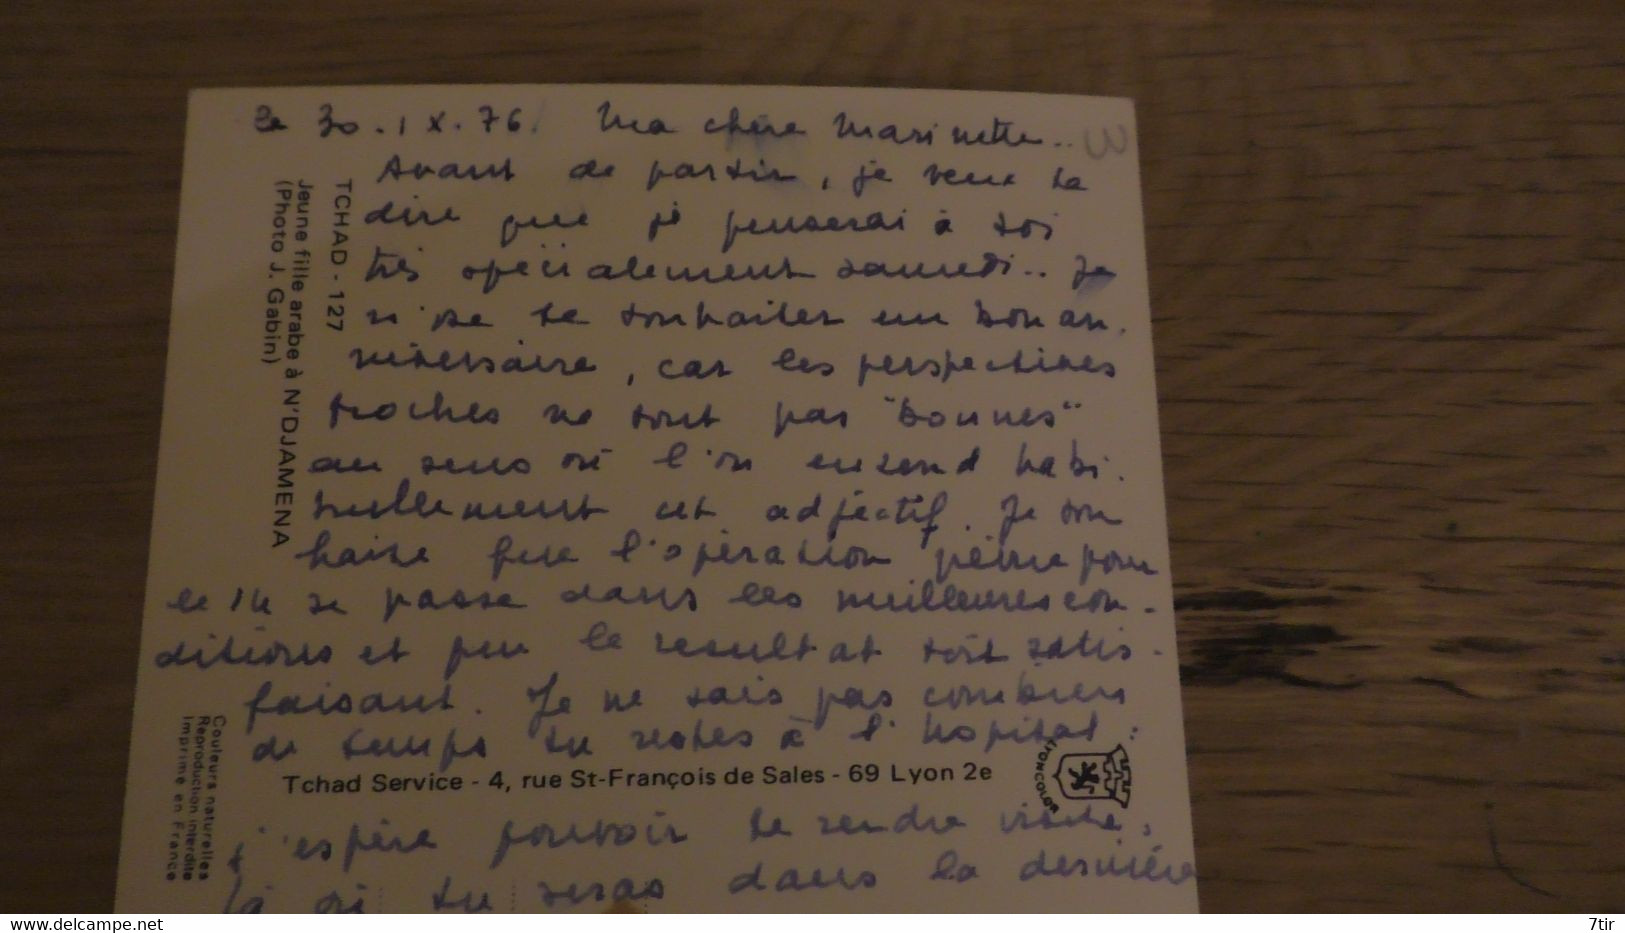 Le 30.IX.76. Ma chère Marinette..
Avant de partir, je veux te
dire que je penserai à toi
très spécialement samedi.. Je
n'ose te souhaiter un bon an.
niversaire, car les perspectives
proches ne sont pas "bonnes"
au sens où l'on entend habi.
tuellement cet adjectif. Je sou
haite que l'opération prévue pour
le 14 se passe dans les meilleures con-
ditions et que le résultat soit satis-
faisant. Je ne sais pas combien
de temps tu restes à l'hôpital :
j'espère pouvoir te rendre visite,
là où tu seras dans la dernière
TCHAD - 127
Jeune fille arabe à N'DJAMENA
(Photo J. Gabin)
Couleurs naturelles
Reproduction interdite
Imprimé en France
Tchad Service - 4, rue St-François de Sales - 69 Lyon 2e
LYONCOLOR
3
delcampe.net
7tir